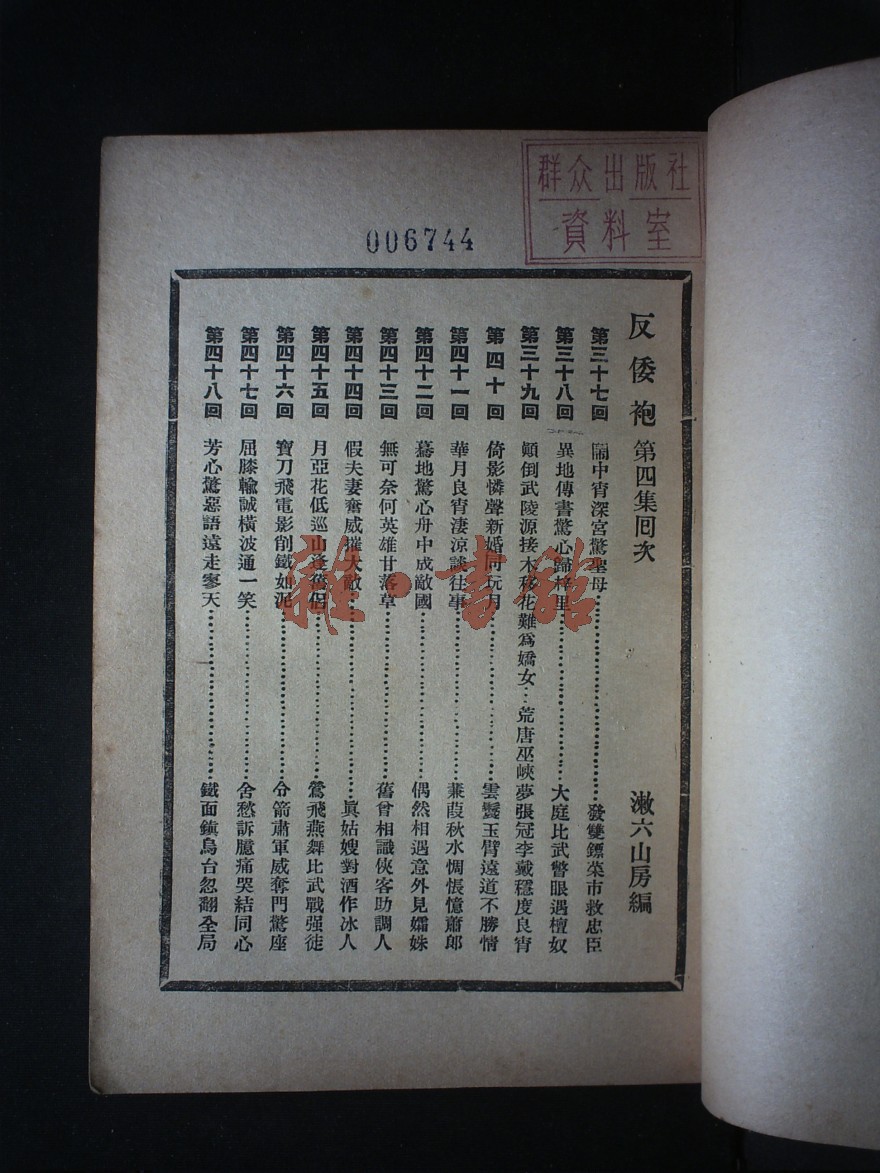 群众出版社
資料室
006744
反倭袍 第四集回次 漱六山房編
第三十七回 鬧中宵深宮驚聖母……發雙鏢菜市救忠臣
第三十八回 異地傳書驚心歸梓里……大庭比武瞥眼遇檀奴
第三十九回 顚倒武陵源接木移花難爲嬌女…荒唐巫峽夢張冠李戴穩度良宵
第四十回 倚影憐聲新婚同玩月……雲鬟玉臂遠道不勝情
第四十一回 華月良宵淒涼談往事……蒹葭秋水惆悵憶蕭郎
第四十二回 驀地驚心舟中成敵國……偶然相遇意外見孀姝
第四十三回 無可奈何英雄甘落草……舊曾相識俠客助調人
第四十四回 假夫妻奮威摧大敵……眞姑嫂對酒作冰人
第四十五回 月亞花低巡山逢舊侶……鶯飛燕舞比武戰强徒
第四十六回 寶刀飛電影削鐵如泥……令箭肅軍威奪門驚座
第四十七回 屈膝輸誠橫波通一笑……含愁訴臆痛哭結同心
第四十八回 芳心驚惡語遠走寥天……鐵面鎭烏台忽翻全局
雜·書館